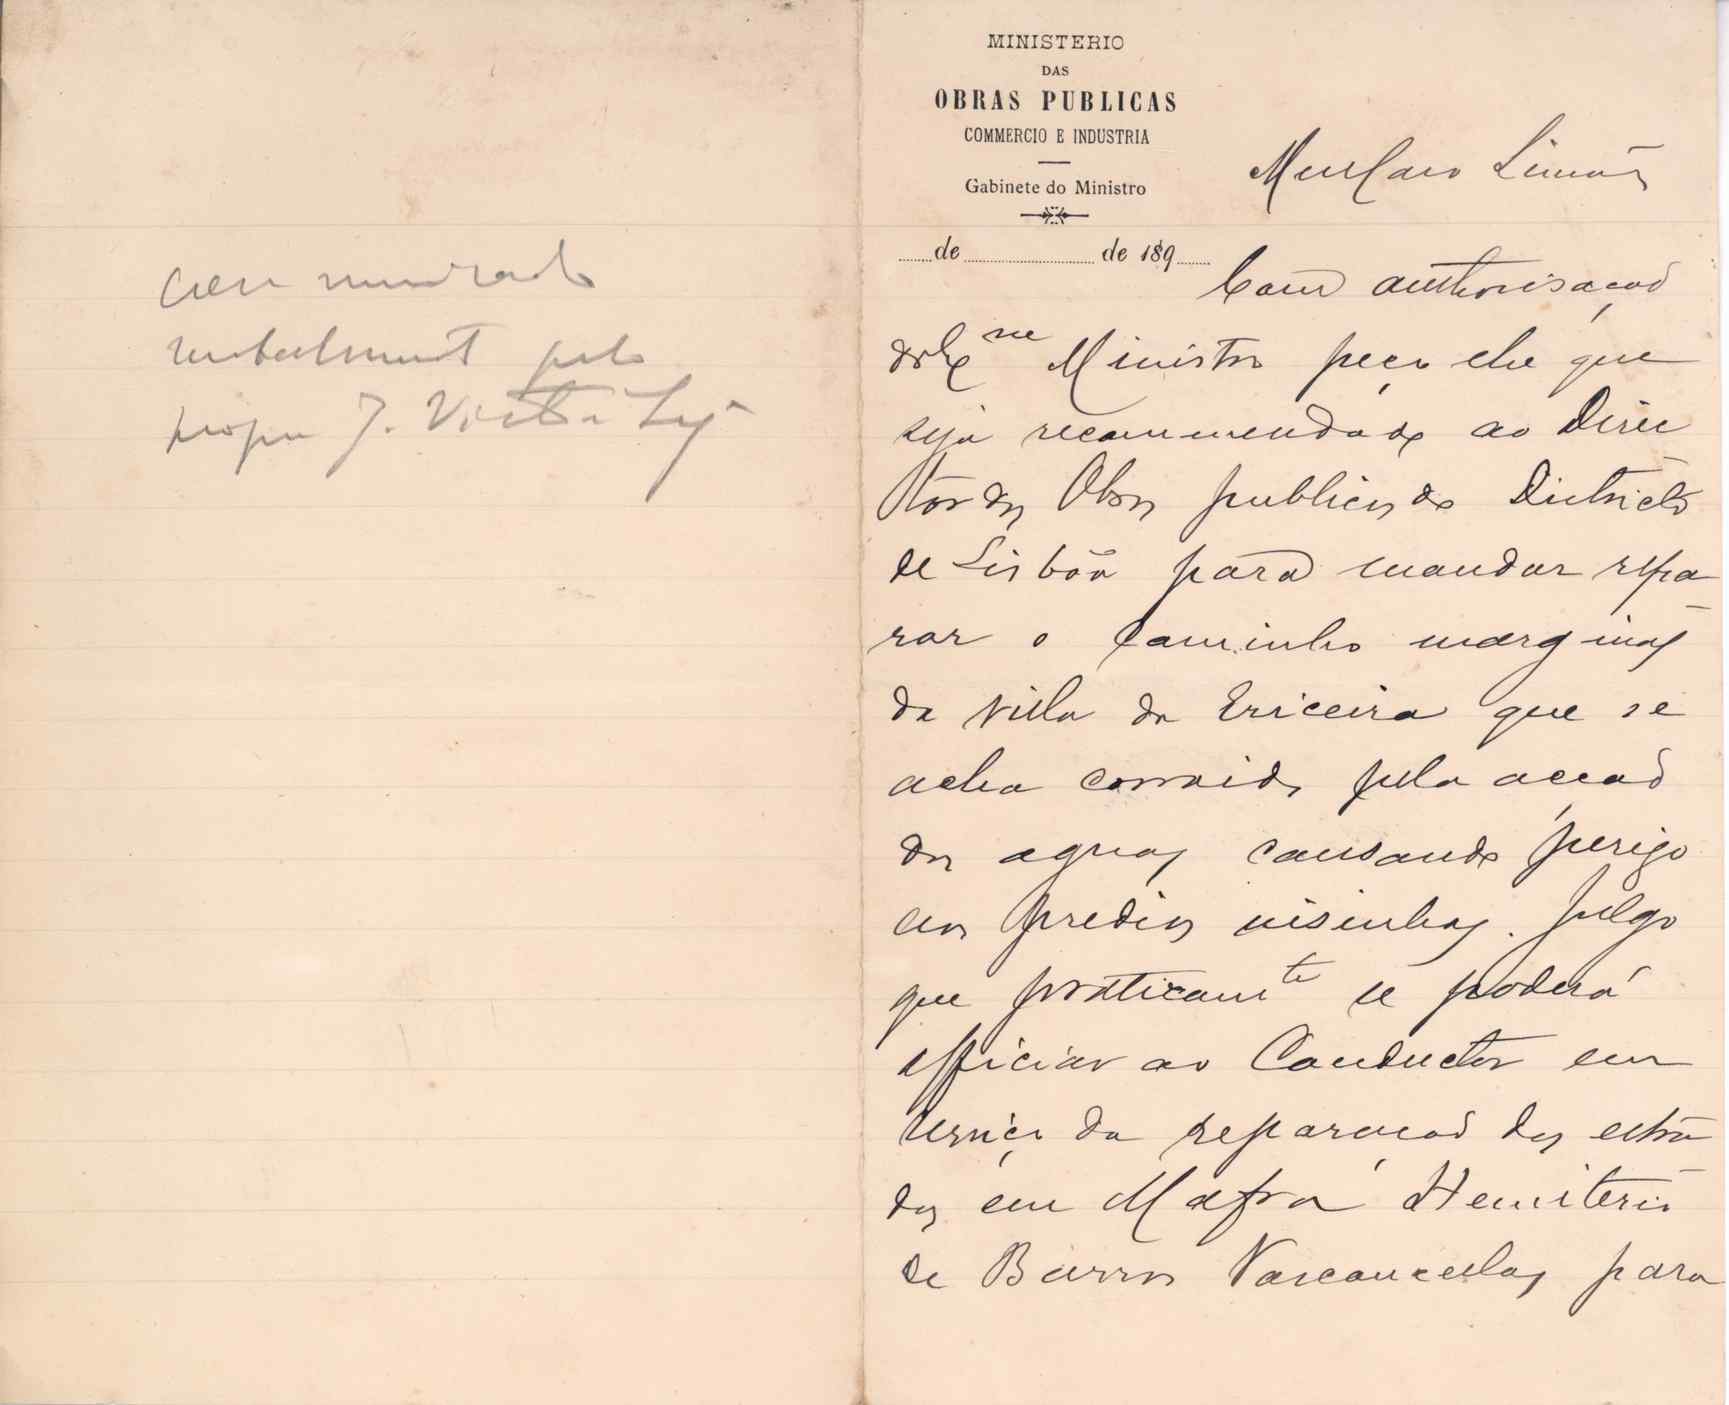 communicado
verbalmente pelo
proprio J. Victor
MINISTERIO
DAS
OBRAS PUBLICAS
COMMERCIO E INDUSTRIA
Gabinete do Ministro
de de 189
Meu Caro Simões
Com authorisação
do Ex.mo Ministro peço lhe que
seja recommendado ao Direc
tor das Obras publicas do Districto
de Lisbôa para mandar repa
rar o Caminho marginal
da villa da Ericeira que se
acha corroido pela acção
das aguas causando perigo
aos predios visinhos. Julgo
que praticamte se poderá
officiar ao Conductor em
serviço da reparação das estra
das em Mafra Hemiterio
de Barros Vasconcellos para